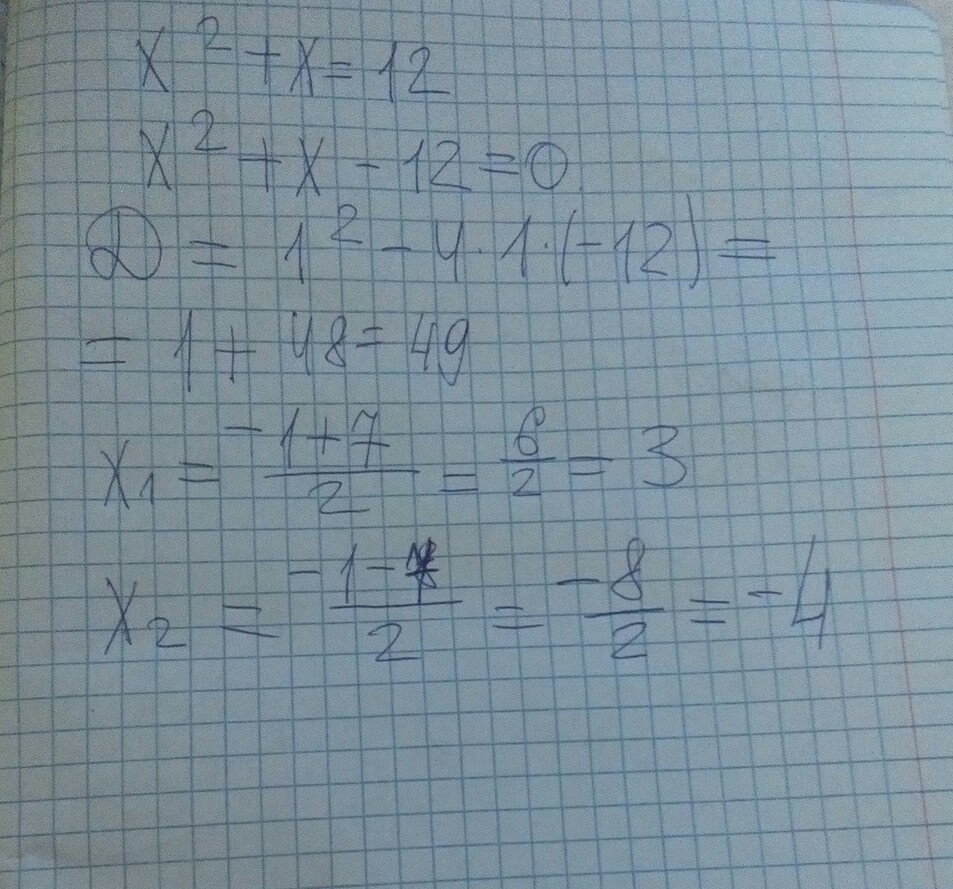 x² + x = 12
x² + x - 12 = 0
D = 1² - 4 · 1 · (-12) =
= 1 + 48 = 49
x₁ = (-1+7)/2 = 6/2 = 3
x₂ = (-1-7)/2 = -8/2 = -4